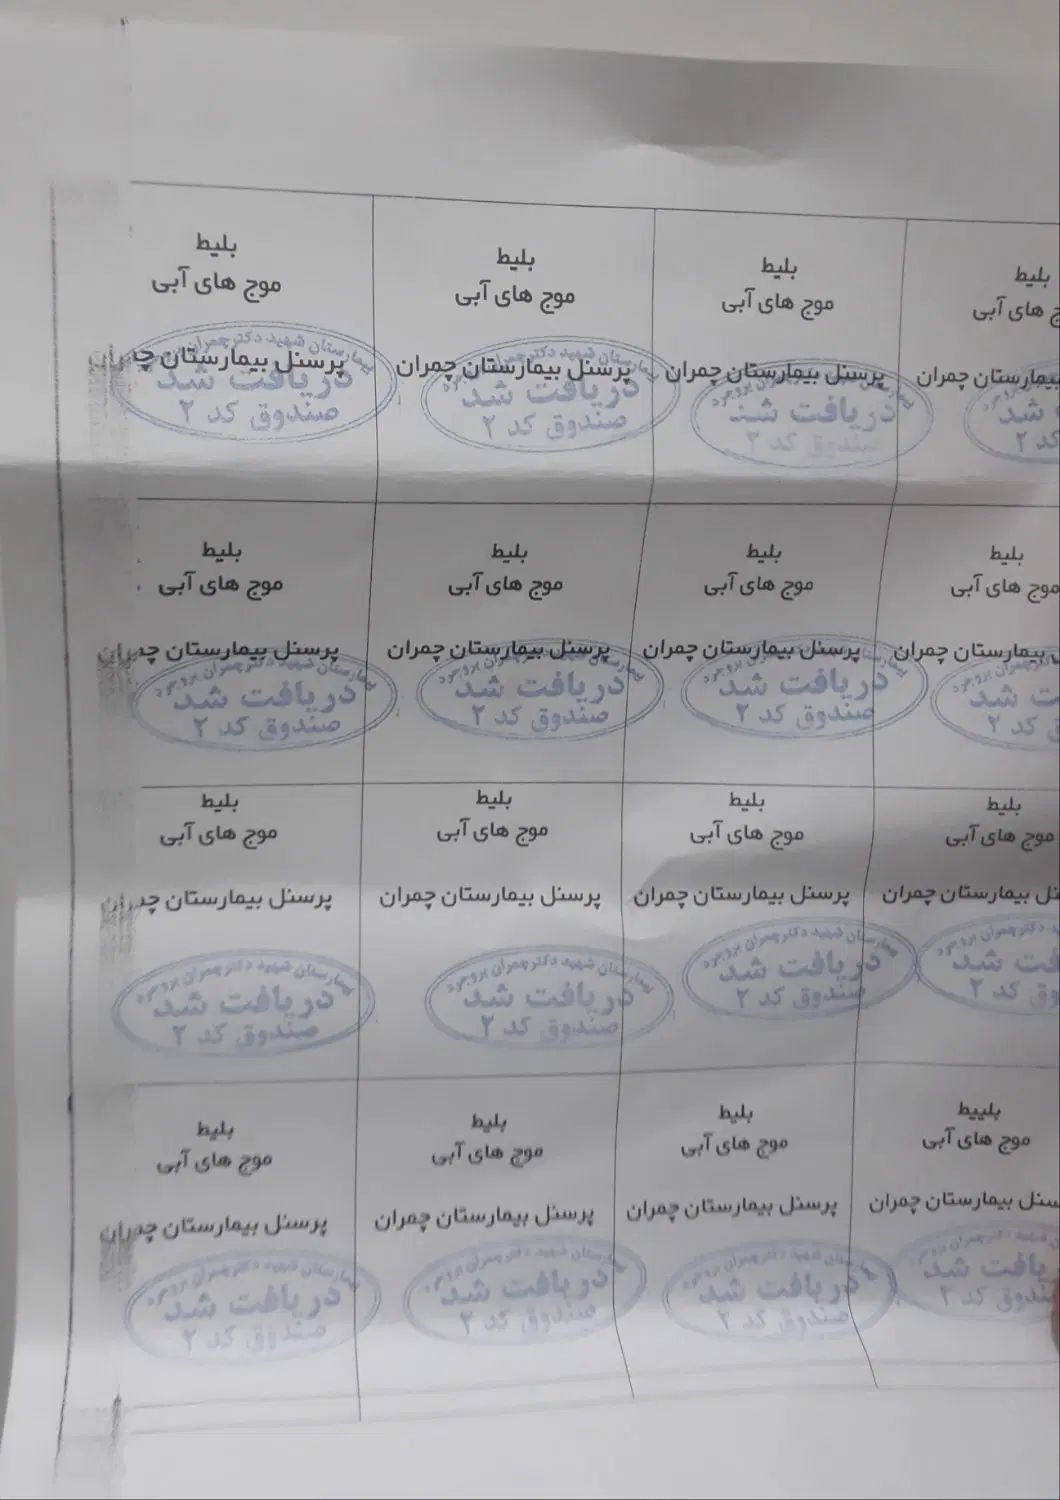 بلیط
های آبی
بیمارستان چمران
شد
کد ۲
بلیط
موج های آبی
پرسنل بیمارستان چمران
دریافت شد
صندوق کد ۲
بلیط
موج های آبی
پرسنل بیمارستان چمران
بیمارستان شهید دکتر چمران بروجرد
دریافت شد
صندوق کد ۲
بلیط
موج های آبی
پرسنل بیمارستان چمران
بیمارستان شهید دکتر چمران
دریافت شد
صندوق کد ۲
بلیط
موج های آبی
بیمارستان چمران
شد
کد ۲
بلیط
موج های آبی
پرسنل بیمارستان چمران
دریافت شد
صندوق کد ۲
بلیط
موج های آبی
پرسنل بیمارستان چمران
بیمارستان شهید دکتر چمران بروجرد
دریافت شد
صندوق کد ۲
بلیط
موج های آبی
پرسنل بیمارستان چمران
بیمارستان شهید دکتر چمران بروجرد
دریافت شد
صندوق کد ۲
بلیط
موج های آبی
بیمارستان چمران
دکتر چمران بروجرد
شد
کد ۲
بلیط
موج های آبی
پرسنل بیمارستان چمران
بیمارستان شهید دکتر چمران بروجرد
دریافت شد
صندوق کد ۲
بلیط
موج های آبی
پرسنل بیمارستان چمران
بیمارستان شهید دکتر چمران بروجرد
دریافت شد
صندوق کد ۲
بلیط
موج های آبی
پرسنل بیمارستان چمران
بیمارستان شهید دکتر چمران بروجرد
دریافت شد
صندوق کد ۲
بلییط
موج های آبی
بیمارستان چمران
دریافت شد
کد ۲
بلیط
موج های آبی
پرسنل بیمارستان چمران
بیمارستان شهید دکتر چمران بروجرد
دریافت شد
صندوق کد ۲
بلیط
موج های آبی
پرسنل بیمارستان چمران
بیمارستان شهید دکتر چمران بروجرد
دریافت شد
صندوق کد ۲
بلیط
موج های آبی
پرسنل بیمارستان چمران
بیمارستان شهید دکتر چمران بروجرد
دریافت شد
صندوق کد ۲